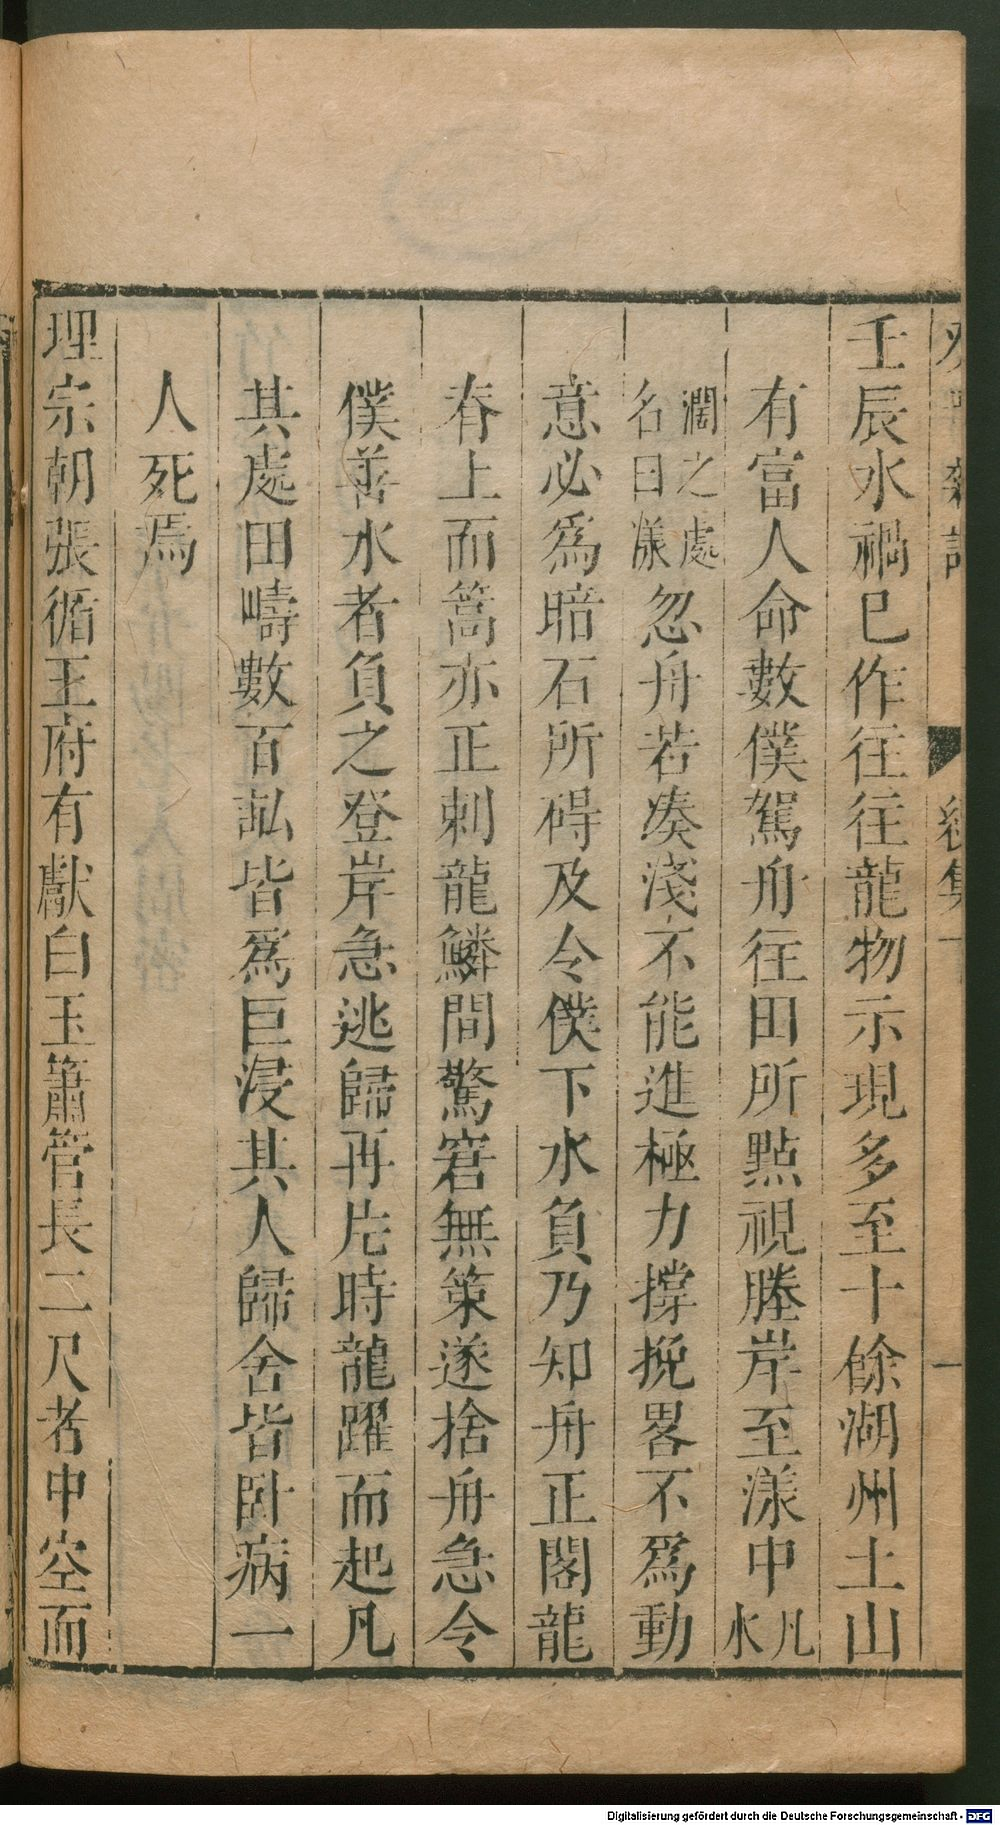 壬辰水禍巳作往往龍物示現多至十餘湖州土山
有富人命數僕駕舟往田所點視塍岸至漾中凡水
濶之處名曰漾忽舟若凑淺不能進極力撐挽畧不爲動
意必爲暗石所碍及令僕下水負乃知舟正閣龍
脊上而篙亦正刺龍鱗間驚窘無策遂捨舟急令
僕善水者負之登岸急逃歸再片時龍躍而起凡
其處田疇數百畆皆爲巨浸其人歸舍皆卧病一
人死焉
理宗朝張循王府有獻白玉簫管長二尺者中空而
Digitalisierung gefördert durch die Deutsche Forschungsgemeinschaft - DFG